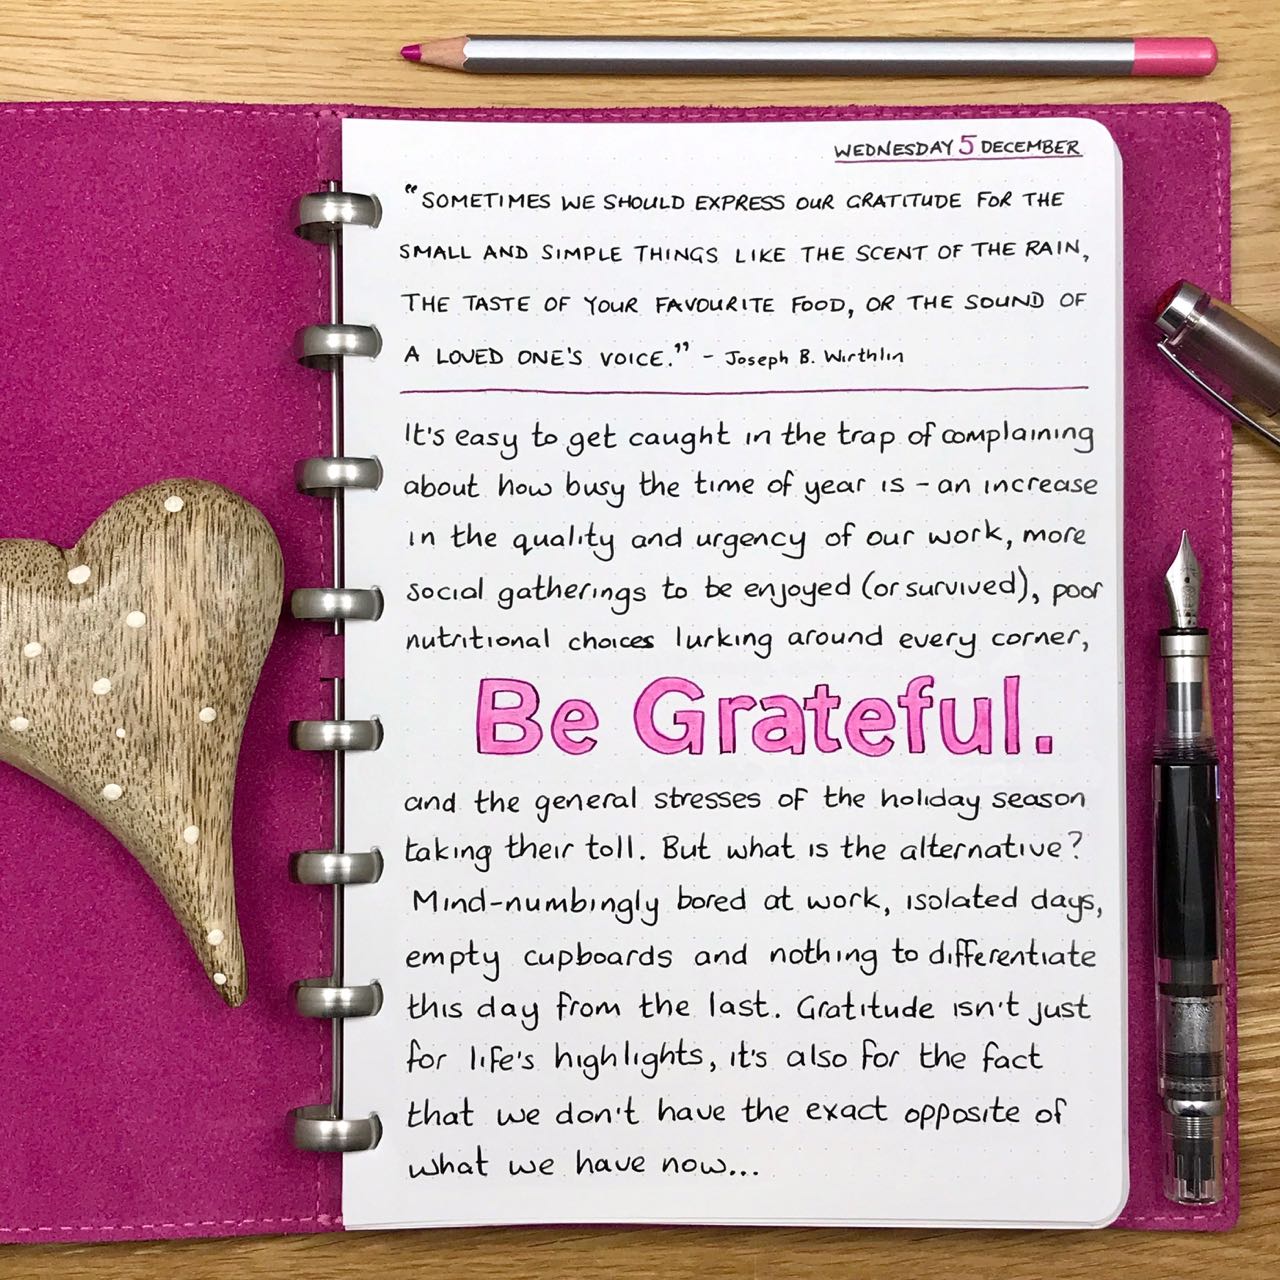 WEDNESDAY 5 DECEMBER
"SOMETIMES WE SHOULD EXPRESS OUR GRATITUDE FOR THE
SMALL AND SIMPLE THINGS LIKE THE SCENT OF THE RAIN,
THE TASTE OF YOUR FAVOURITE FOOD, OR THE SOUND OF
A LOVED ONE'S VOICE." - Joseph B. Wirthlin
It's easy to get caught in the trap of complaining
about how busy the time of year is - an increase
in the quality and urgency of our work, more
social gatherings to be enjoyed (or survived), poor
nutritional choices lurking around every corner,
Be Grateful.
and the general stresses of the holiday season
taking their toll. But what is the alternative?
Mind-numbingly bored at work, isolated days,
empty cupboards and nothing to differentiate
this day from the last. Gratitude isn't just
for life's highlights, it's also for the fact
that we don't have the exact opposite of
what we have now...